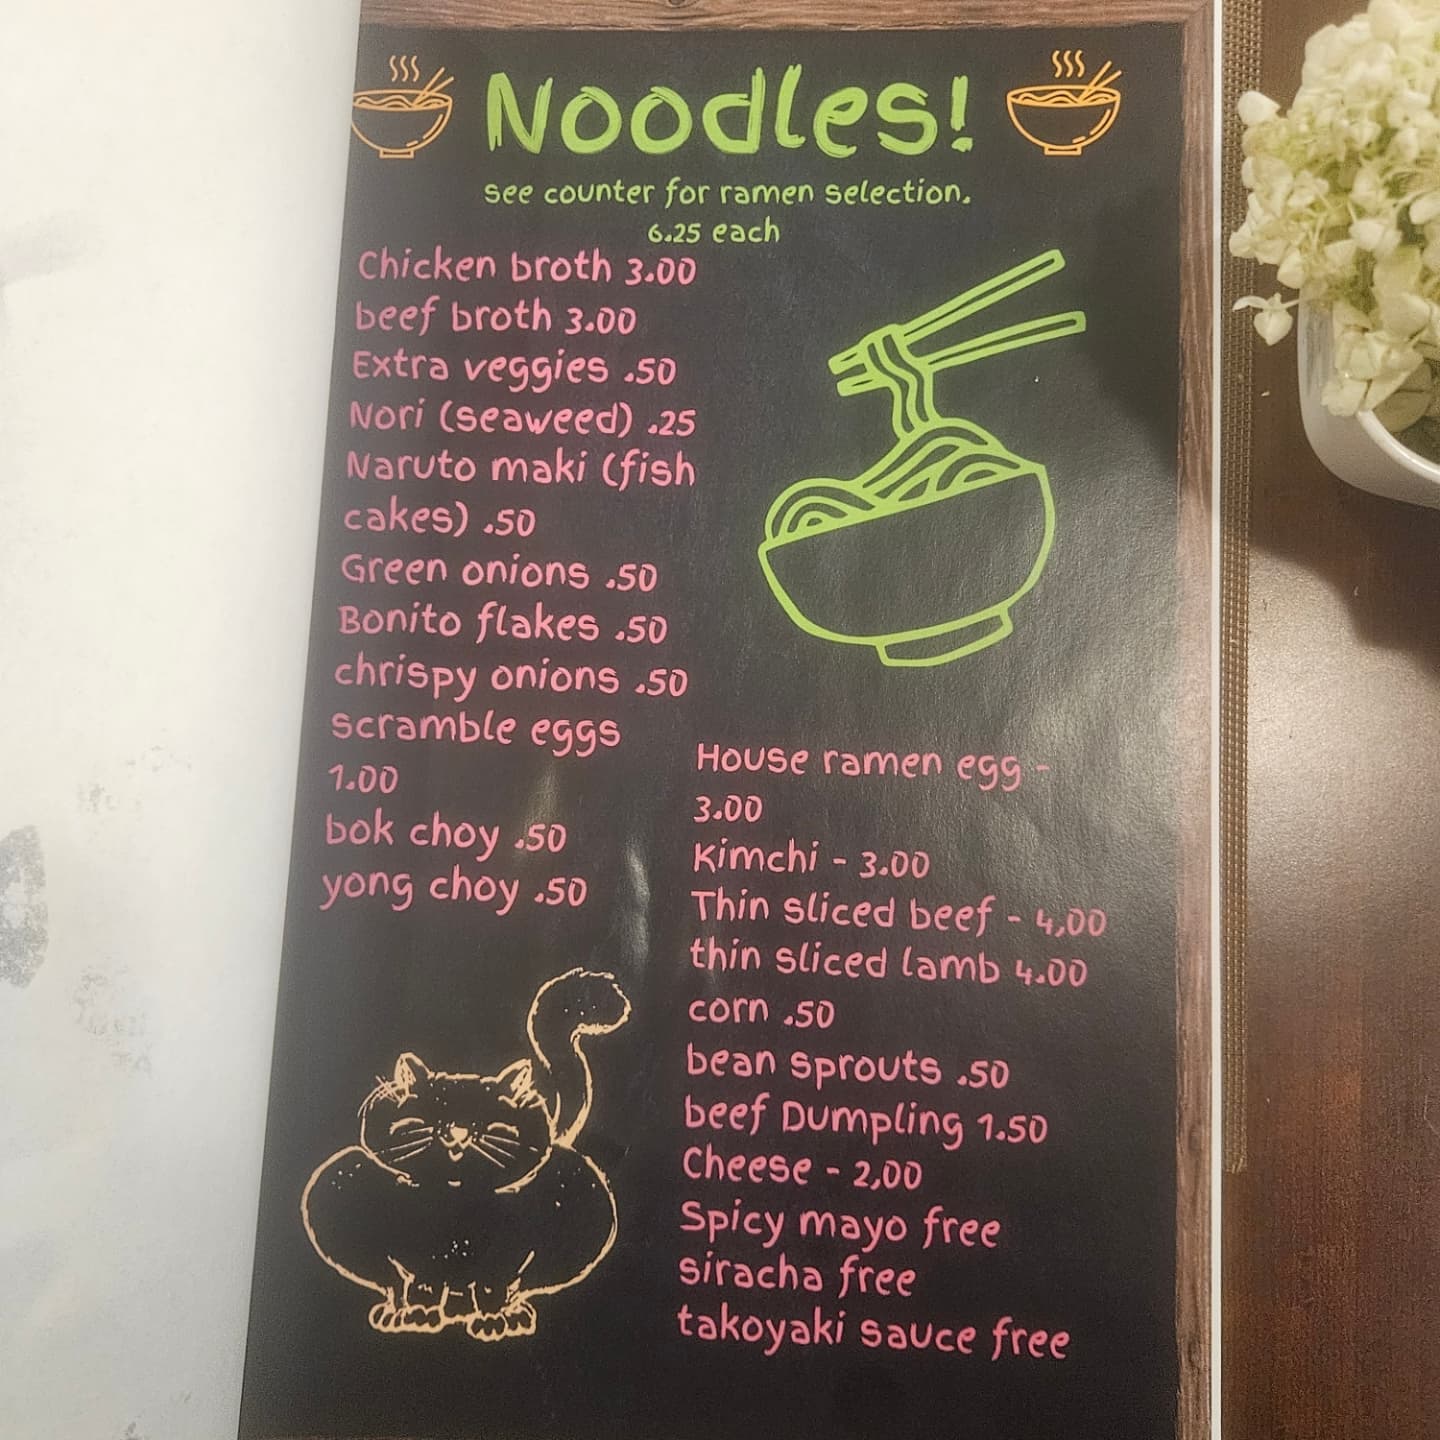 Noodles!
see counter for ramen selection.
6.25 each
Chicken broth 3.00
beef broth 3.00
Extra veggies .50
Nori (seaweed) .25
Naruto maki (fish
cakes) .50
Green onions .50
Bonito flakes .50
chrispy onions .50
scramble eggs
1.00
bok choy .50
yong choy .50
House ramen egg -
3.00
Kimchi - 3.00
Thin sliced beef - 4,00
thin sliced lamb 4.00
corn .50
bean sprouts .50
beef Dumpling 1.50
Cheese - 2,00
Spicy mayo free
siracha free
takoyaki sauce free